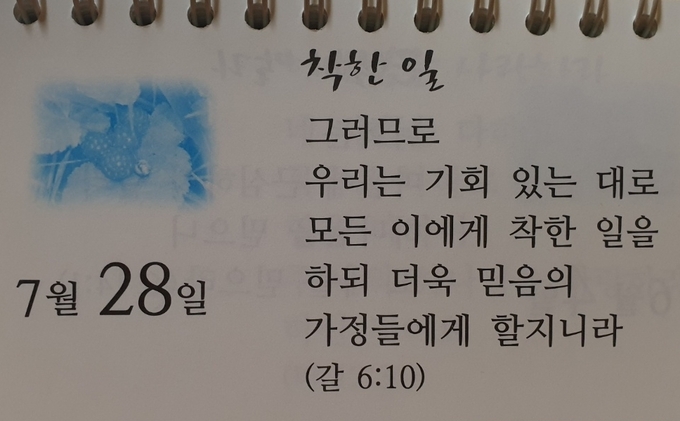 착한 일
그러므로
우리는 기회 있는 대로
모든 이에게 착한 일을
하되 더욱 믿음의
가정들에게 할지니라
(갈 6:10)
7월 28일